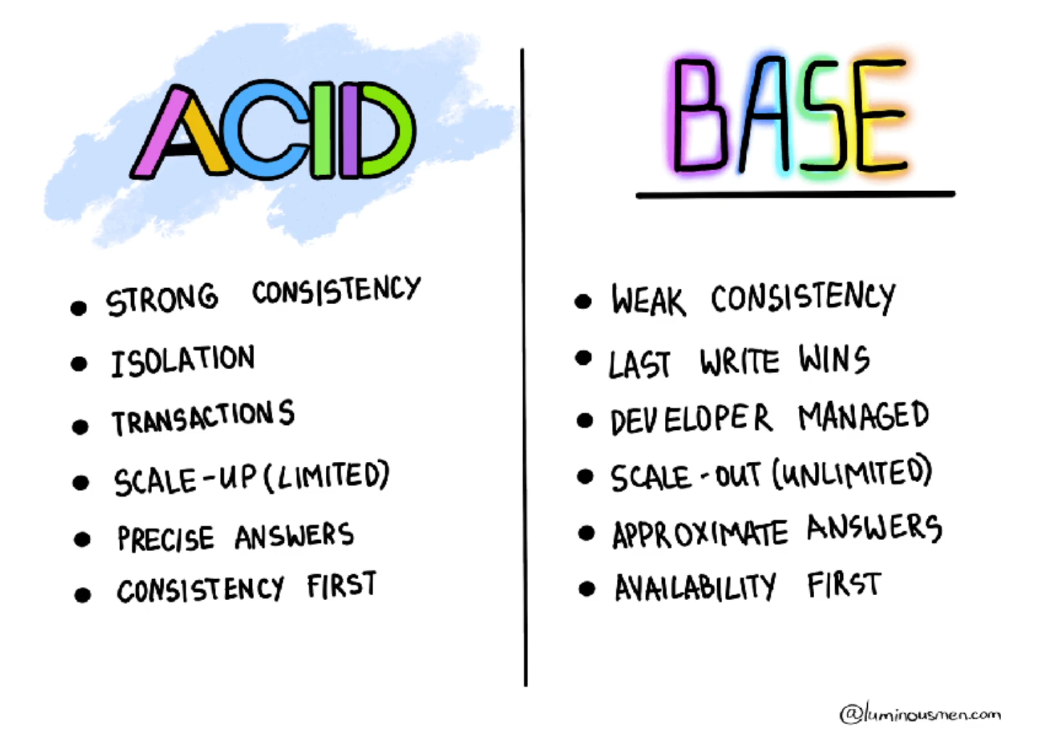 ACID
• STRONG CONSISTENCY
• ISOLATION
• TRANSACTIONS
• SCALE-UP (LIMITED)
• PRECISE ANSWERS
• CONSISTENCY FIRST
BASE
• WEAK CONSISTENCY
• LAST WRITE WINS
• DEVELOPER MANAGED
• SCALE-OUT (UNLIMITED)
• APPROXIMATE ANSWERS
• AVAILABILITY FIRST
@luminousmen.com